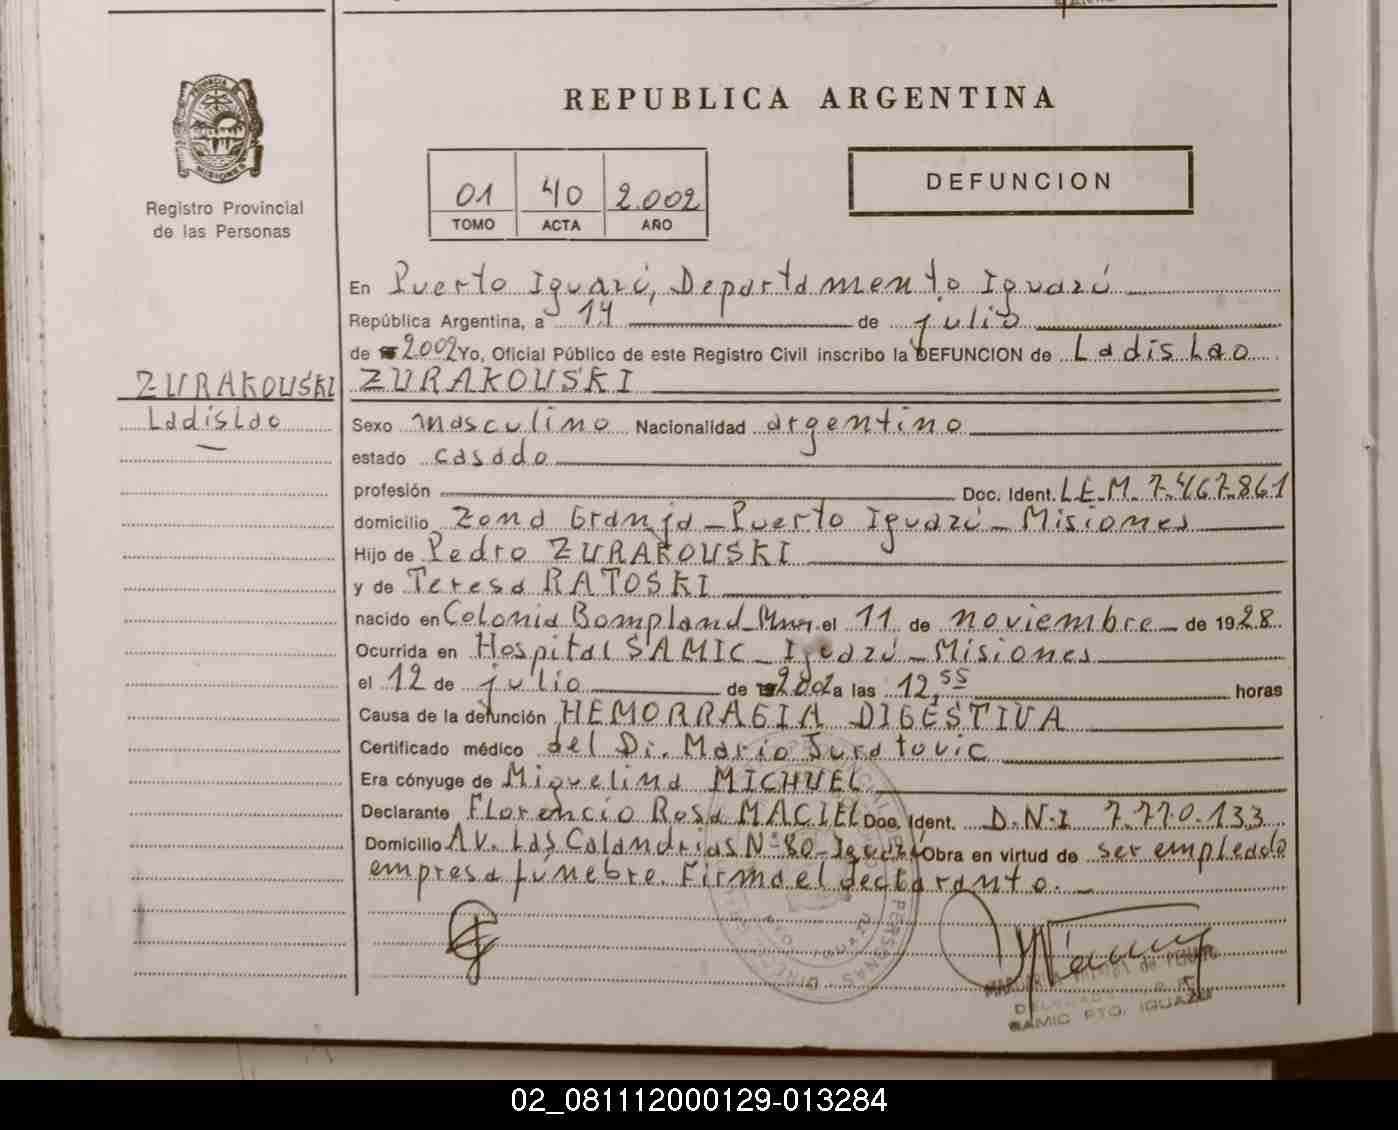 PROVINCIA DE
MISIONES
Registro Provincial
de las Personas
REPUBLICA ARGENTINA
01 40 2.002
TOMO ACTA AÑO
DEFUNCION
En Puerto Iguazú, Departamento Iguazú
República Argentina, a 14 de julio
de 2002 Yo, Oficial Público de este Registro Civil inscribo la DEFUNCION de Ladislao
ZURAKOUSKI
ZURAKOUSKI
Ladislao
Sexo masculino Nacionalidad argentino
estado casado
profesión Doc. Ident. L.E.M. 7.467.861
domicilio Zona Granja - Puerto Iguazú - Misiones
Hijo de Pedro ZURAKOUSKI
y de Teresa RATOSKI
nacido en Colonia Bompland - el 11 de noviembre - de 1928
Ocurrida en Hospital SAMIC - Iguazú - Misiones
el 12 de julio de 2002 a las 12,55 horas
Causa de la defunción HEMORRAGIA DIGESTIVA
Certificado médico del Dr. Mario Juratovic
Era cónyuge de Miguelina MICHUEL
Declarante Florencio Rosa MACIEL Doc. Ident. D.N.I 7.770.133
Domicilio AV. Las Calandrias Nº 80 - Iguazú Obra en virtud de ser empleado
empresa fúnebre. Firma el declarante. -
PERSONAS
SAMIC PTO. IGUAZU
02_081112000129-013284